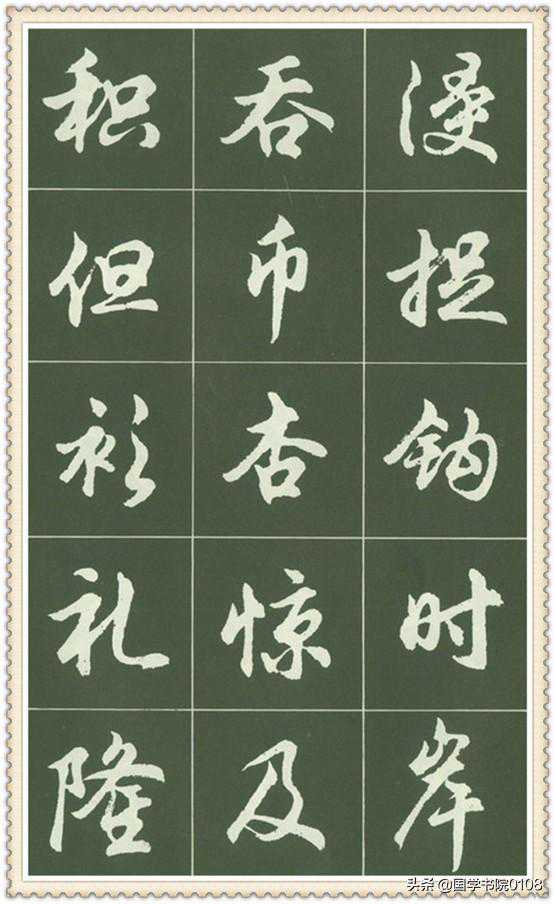 漫捉钩时岸
吞币杏惊及
积但衫礼隆
头条@国学书院0108